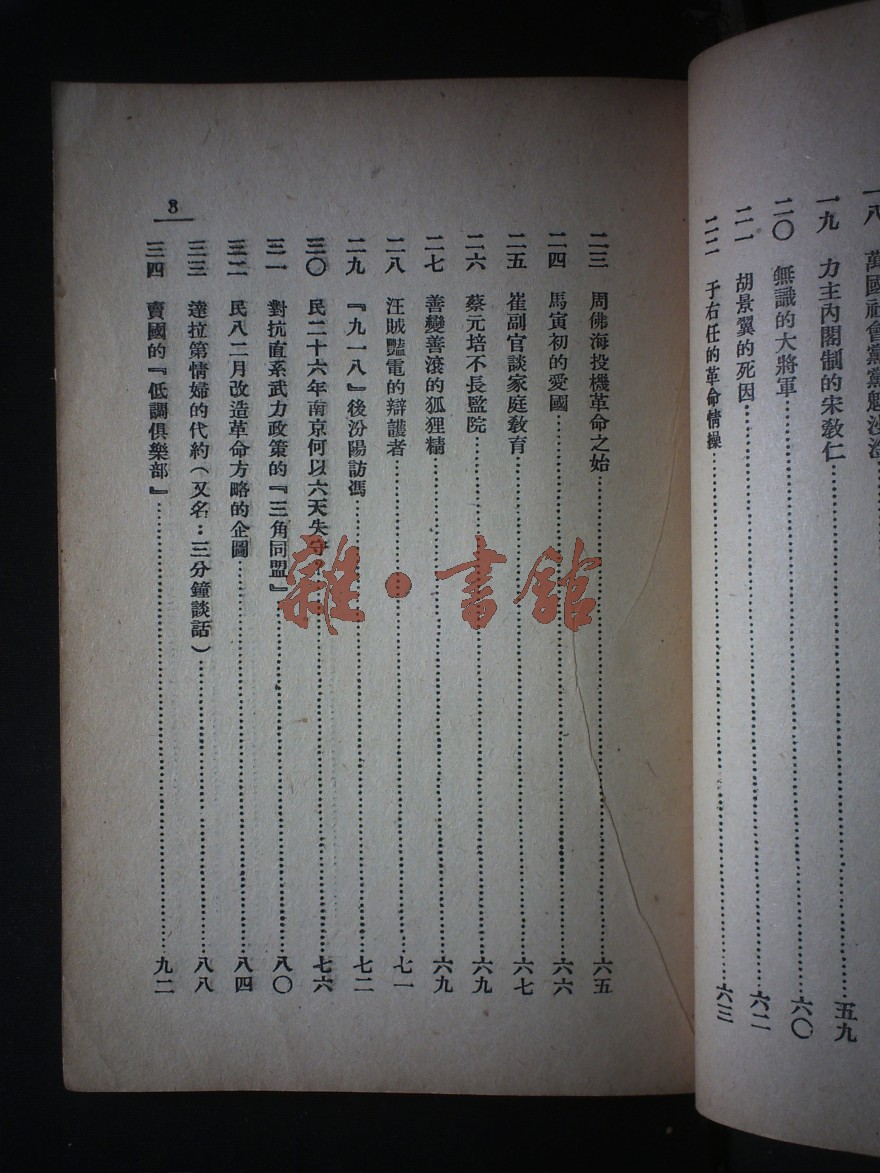 一八　萬國社會黨黨魁沙淦
一九　力主內閣制的宋敎仁……五九
二〇　無識的大將軍……六〇
二一　胡景翼的死因……六二
二二　于右任的革命情操……六三
二三　周佛海投機革命之始……六五
二四　馬寅初的愛國……六六
二五　崔副官談家庭敎育……六七
二六　蔡元培不長監院……六九
二七　善變善滾的狐狸精……六九
二八　汪賊豔電的辯護者……七一
二九　『九一八』後汾陽訪馮……七二
三〇　民二十六年南京何以六天失守……七六
三一　對抗直系武力政策的『三角同盟』……八〇
三二　民八二月改造革命方略的企圖……八四
三三　達拉第情婦的代約（又名：三分鐘談話）……八八
三四　賣國的『低調俱樂部』……九二
8
雜·書館